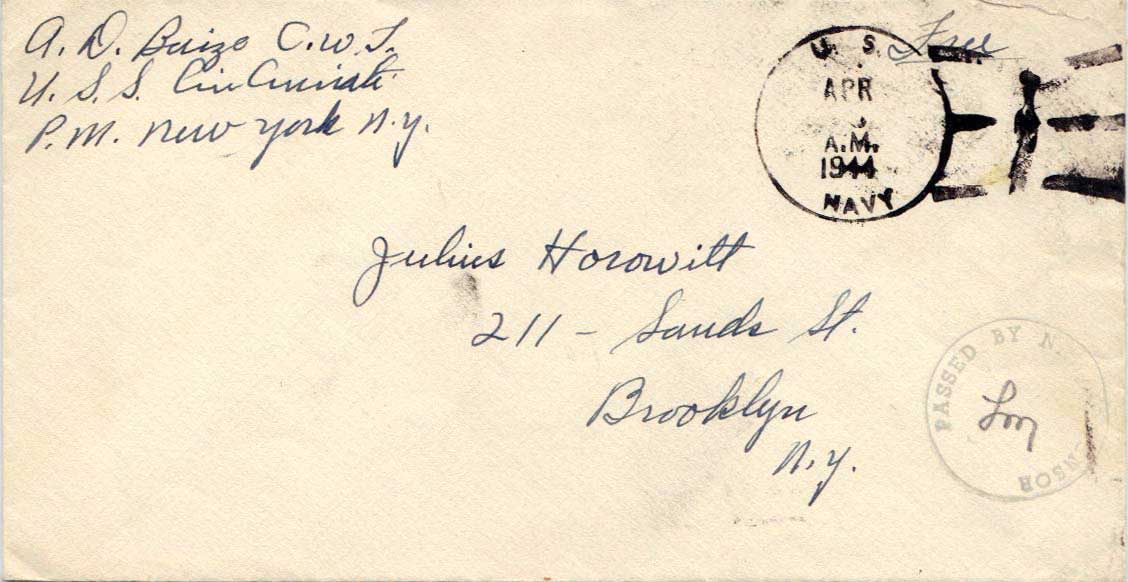 A. D. Baizo C.W.T.
U.S.S. Cincinnati
P.M. New York N.Y.
Free
U. S.
APR
A.M.
1944
NAVY
Julius Horowitt
211 - Sands St.
Brooklyn
N.Y.
PASSED BY N.
NSOR